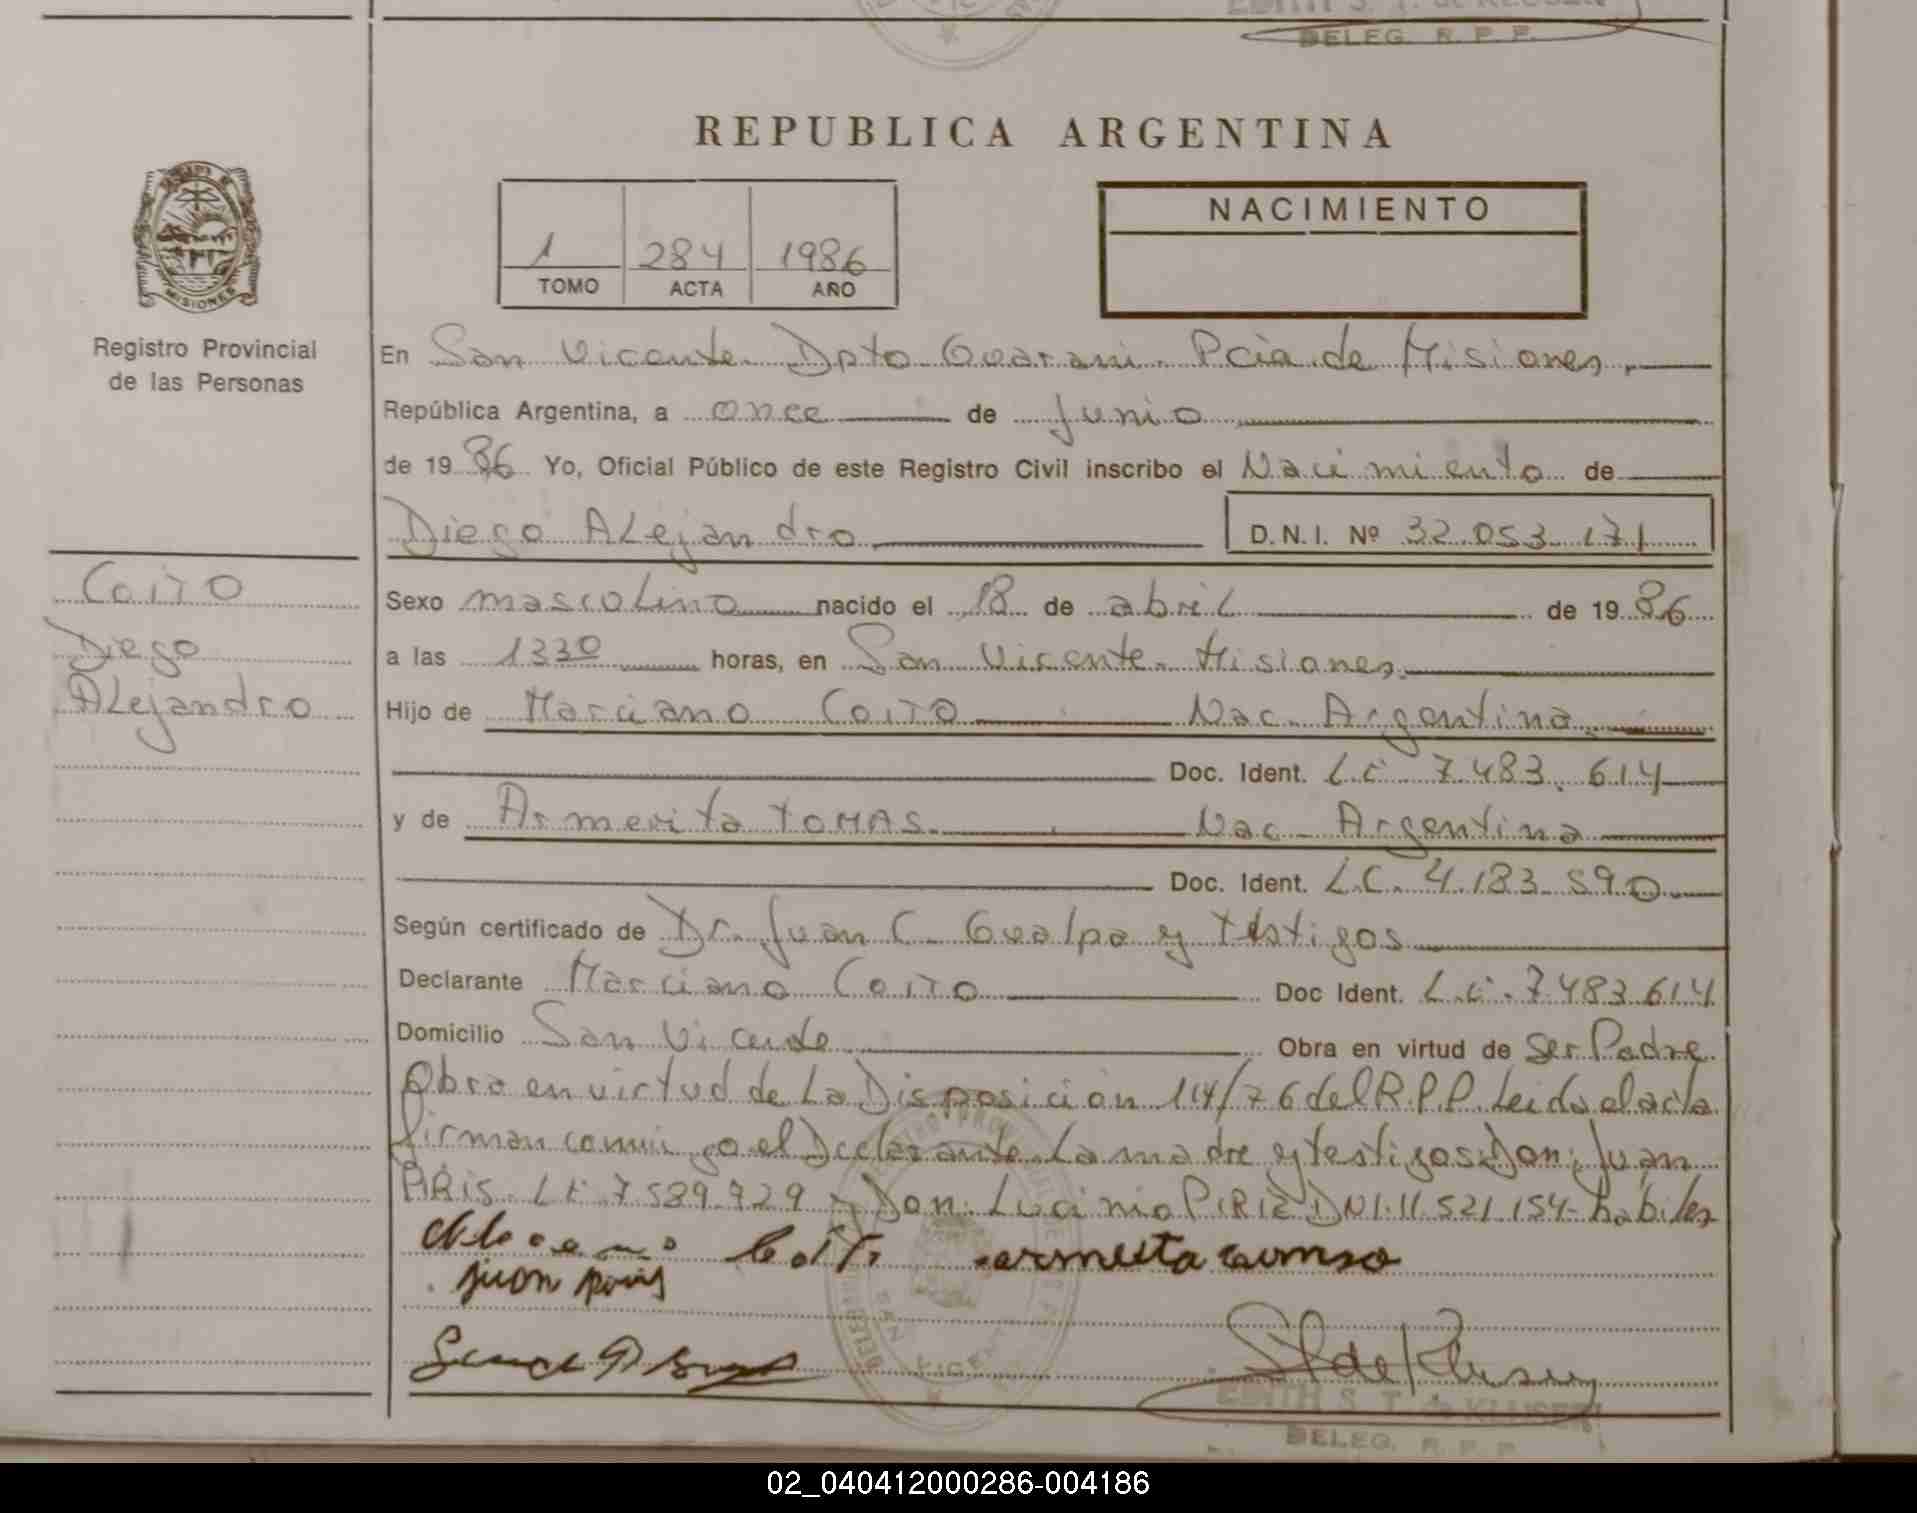 DELEG. R. P. P.
REPUBLICA ARGENTINA
1 284 1986
TOMO ACTA AÑO
NACIMIENTO
MISIONES
Registro Provincial
de las Personas
En San Vicente Dpto Guarani Pcia de Misiones
República Argentina, a once de Junio
de 19 86 Yo, Oficial Público de este Registro Civil inscribo el Nacimiento de
Diego ALejandro D.N.I. Nº 32.053.171
COITO
Diego
ALejandro
Sexo mascuLino nacido el 18 de abriL de 19 86
a las 1330 horas, en San Vicente Misiones
Hijo de Marciano COITO Nac. Argentina
Doc. Ident. L.E. 7.483.614
y de Armerita TOMAS Nac. Argentina
Doc. Ident. L.C. 4.183.590
Según certificado de Dr. Juan C. Gualpa y testigos
Declarante Marciano COITO Doc Ident. L.E. 7.483.614
Domicilio San Vicente Obra en virtud de Ser Padre
Obra en virtud de La Disposición 114/76 del R.P.P. Leida el acta
firman conmigo el Declarante La madre y testigos Don: Juan
PARIS LE 7.589.929 y Don: Lucinio PIRIZ DNI. 11.521.154 habiles
juan paris
EDITH S. T. de KLUSER
DELEG. R. P. P.
02_040412000286-004186